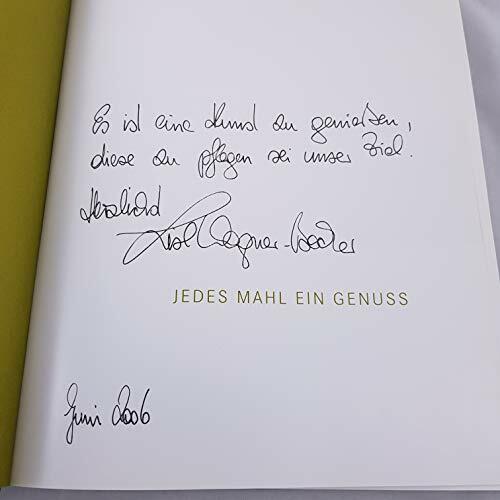 Es ist eine Kunst zu genießen,
diese zu pflegen sei unser Ziel.
Herzlichst
Wagner-Becker
JEDES MAHL EIN GENUSS
Juni 2006